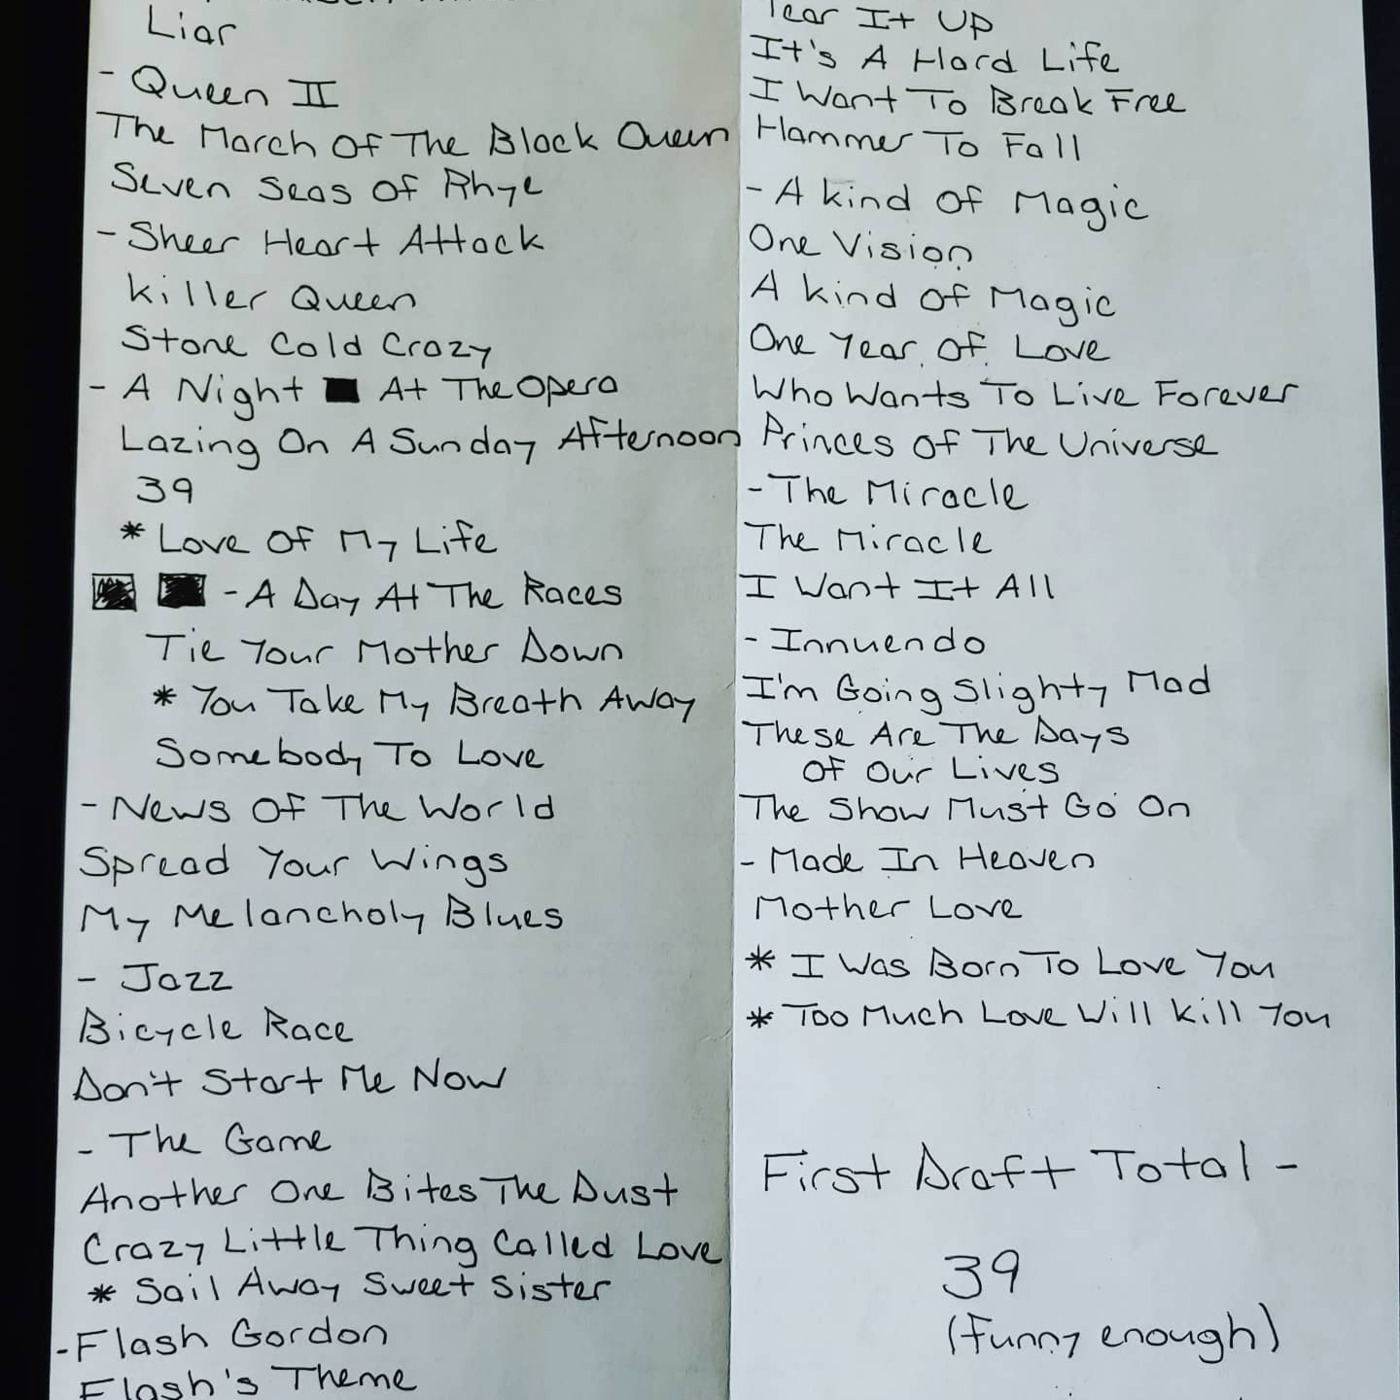 Liar
- Queen II
The March Of The Black Queen
Seven Seas Of Rhye
- Sheer Heart Attack
Killer Queen
Stone Cold Crazy
- A Night At The Opera
Lazing On A Sunday Afternoon
39
* Love Of My Life
- A Day At The Races
Tie Your Mother Down
* You Take My Breath Away
Somebody To Love
- News Of The World
Spread Your Wings
My Melancholy Blues
- Jazz
Bicycle Race
Don't Start Me Now
- The Game
Another One Bites The Dust
Crazy Little Thing Called Love
* Sail Away Sweet Sister
- Flash Gordon
Flash's Theme
Tear It Up
It's A Hard Life
I Want To Break Free
Hammer To Fall
- A Kind Of Magic
One Vision
A Kind Of Magic
One Year Of Love
Who Wants To Live Forever
Princes Of The Universe
- The Miracle
The Miracle
I Want It All
- Innuendo
I'm Going Slighty Mad
These Are The Days
Of Our Lives
The Show Must Go On
- Made In Heaven
Mother Love
* I Was Born To Love You
* Too Much Love Will Kill You
First Draft Total -
39
(funny enough)